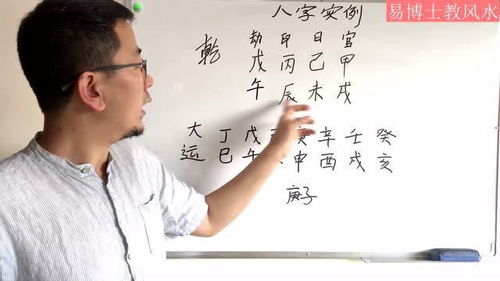 易博士教风水
八字实例
劫 日 官
乾 戊 丙 己 甲
午 辰 未 戌
大 丁 戊 庚 辛 壬 癸
运 巳 午 申 酉 戌 亥
庚子